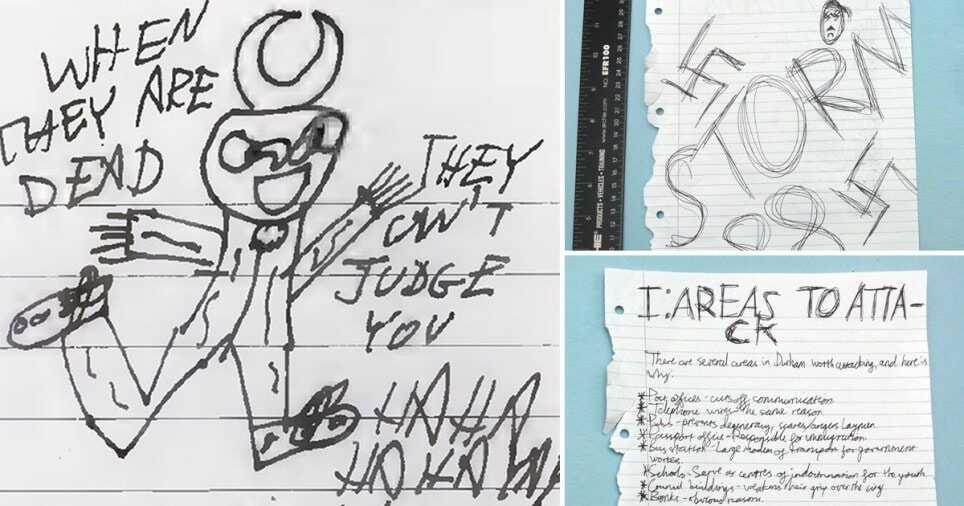 WHEN
THEY ARE
DEAD
THEY
CAN'T
JUDGE
YOU
HAHA
HAHAHA
NO. EFR100
PRODUCTS • VEHICLES • TRAINING
STORM
I: AREAS TO ATTA-
CK
There are several areas in Durham worth attacking, and here is
why:
* Post offices - cuts off communication
* Telephone wires - the same reason
* Pubs - promotes degeneracy, scares/angers laymen
* Passport office - Responsible for immigration
* Bus station - Large modes of transport for government
workers
* Schools - Serve as centres of indoctrination for the youth
* Council buildings - weakens their grip over the city
* Banks - obvious reasons